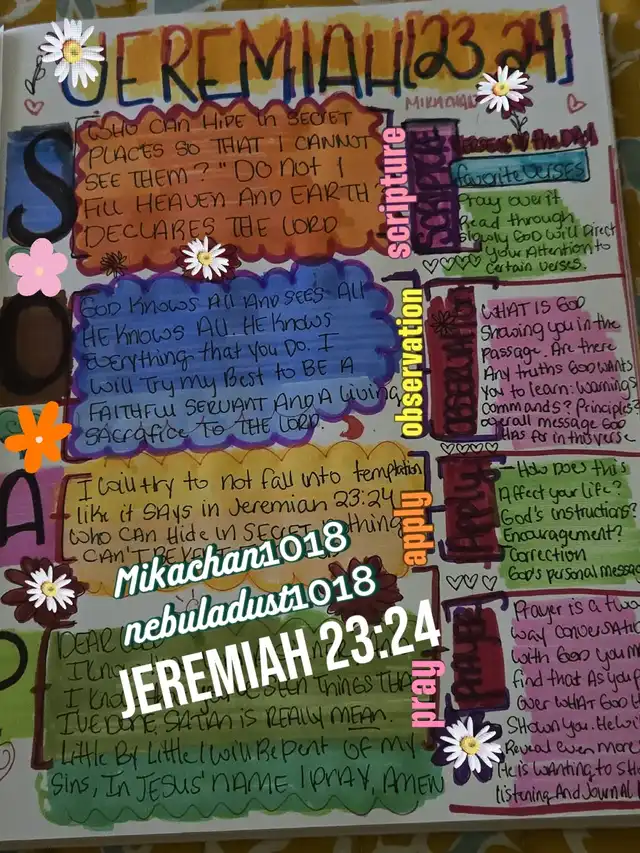 JEREMIAH [23:24]
MIKACHAN
S
WHO CAN HIDE IN SECRET
PLACES SO THAT I CANNOT
SEE THEM? " DO NOT I
FILL HEAVEN AND EARTH?
DECLARES THE LORD
scripture
SCRIPTURE
VERSES of the DAY
favorite VERSES
Pray over it
Read through
slowly GOD will Direct
your Attention to
certain verses.
O
GOD KNOWS All AND SEES All
HE KNOWS All. HE KNOWS
Everything that You DO. I
will Try My Best to BE A
FAITHFUL SERVANT AND A Living
SACRAFICE TO THE LORD.
observation
OBSERVATION
WHAT IS GOD
Showing you in the
passage. Are there
Any truths GOD wants
you to learn: Warnings
Commands? Principles?
overall message GOD
Has for in this verse
A
I will try to not fall into temptation
like it SAYS in Jeremiah 23:24
WHO CAN Hide IN SECRET thing
CAN'T BE
apply
APPLY
- How Does this
Affect your life?
God's instructions?
Encouragement?
Correction
God's personal message
Mikachan1018
nebuladust1018
JEREMIAH 23:24
P
DEAR
I KNOW
I KNOW THINGS THAT
I'VE DONE. SATAN is REALLY MEAN.
Little By Little I will Repent OF MY
Sins, In JESUS' NAME I PRAY, AMEN
pray
PRAYER
Prayer is a two
way conversation
with GOD you m
find that As you p
over WHAT GOD
Shown you. He wi
Reveal even more
He is wanting to sh
listening And Journal